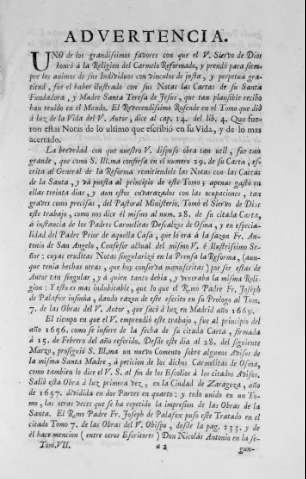 ADVERTENCIA.
UNO de los grandissimos favores con que el V. Siervo de Dios
honrò à la Religion del Carmelo Reformado, y prendò para siem-
pre los animos de sus Individuos con vinculos de justa, y perpetua gra-
titud, fue el haber ilustrado con sus Notas las Cartas de su Santa
Fundadora, y Madre Santa Teresa de Jesus, que tan plausible recibo
han tenido en el Mundo. El Reverendissimo Rosende en el Tomo que diò
à luz de la Vida del V. Autor, dice al cap. 14. del lib. 4. Que fue-
ron estas Notas de lo ultimo que escribiò en su Vida, y de lo mas
acertado.
La brevedad con que nuestro V. dispuso obra tan util, fue tan
grande, que como S. Illma confiesa en el numero 29. de su Carta, es-
crita al General de la Reforma remitiendole las Notas con las Cartas
de la Santa, y và puesta al principio de este Tomo; apenas gastò en
ellas treinta dias, y aun estos embarazados con las ocupaciones, tan
grates como precisas, del Pastoral Ministerio. Tomò el Siervo de Dios
este trabajo, como nos dice èl mismo al num. 28. de su citada Carta,
à instancia de los Padres Carmelitas Descalzos de Osma, y en especia-
lidad del Padre Prior de aquella Casa, que lo era à la sazon Fr. An-
tonio de San Angelo, Confesor actual del mismo V. è Ilustrisimo Se-
ñor: cuyas eruditas Notas singularizò en la Prensa la Reforma, (aun-
que tenia hechas otras, que hoy conserva manuscritas) por ser estas de
Autor tan singular, y à quien tanto debia, y veneraba la misma Reli-
gion: Y esto es mas indubitable, que lo que el R.mo Padre Fr. Joseph
de Palafox insinúa, dando razon de este escrito en su Prologo al Tom.
7. de las Obras del V. Autor, que sacò à luz en Madrid año 1669.
El tiempo en que el V. emprendiò este trabajo, fue al principio del
año 1656. como se infiere de la fecha de su citada Carta, firmada
à 15. de Febrero del año referido. Desde este dia al 28. del siguiente
Marzo, prosiguiò S. Ill.ma un nuevo Comento sobre algunos Avisos de
la misma Santa Madre, à peticion de los dichos Carmelitas de Osma,
como tambien lo dice el V. S. al fin de los Escolios à los citados Avisos.
Saliò esta Obra à luz primera vez, en la Ciudad de Zaragoza, año
de 1657. dividida en dos Partes en quarto: y todo unido en un To-
mo, las otras veces que se ha repetido la impresion de las Obras de la
Santa. El R.mo Padre Fr. Joseph de Palafox puso este Tratado en el
citado Tomo 7. de las Obras del V. Obispo, desde la pag. 235. y de
èl hace mencion (entre otros Escritores) Don Nicolàs Antonio en la se-
Tom. VII. a 2 gun-